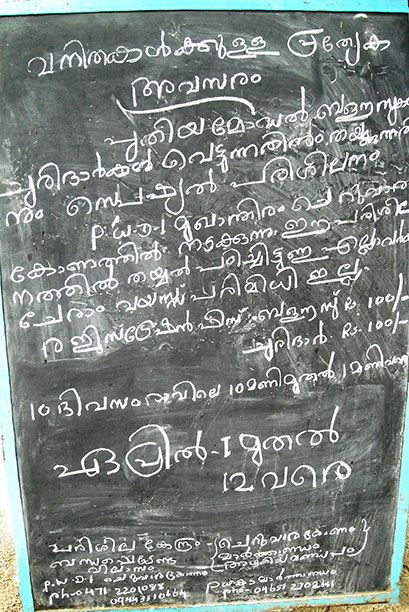 വനിതകൾക്കുള്ള പ്രത്യേക
അവസരം
പുതിയ മോഡൽ ബ്ളൗസുകൾ
ചുരിദാർകൾ വെട്ടുന്നതിനും തയ്ക്കുന്നതി
നും സ്പെഷ്യൽ പരിശീലനം
P.W.D.I മുഖാന്തിരം ചെറുവാര
കോണത്തിൽ നടക്കുന്ന ഈ പരിശീല
നത്തിൽ തയ്യൽ പഠിച്ചിട്ടുള്ള എല്ലാവർ
ചേരാം വയസ്സ് പരിമിധി ഇല്ല.
രജിസ്ട്രേഷൻ ഫീസ്:- ബ്ളൗസ് Rs. 100/-
ചുരിദാർ Rs. 100/-
10 ദിവസം രാവിലെ 10 മണിമുതൽ 1 മണിവരെ
ഏപ്രിൽ - 1 മുതൽ
12 വരെ
പരിശീല കേന്ദ്രം - ചെറുവാരകോണം
മാർത്താണ്ഡം
P.W.D.I ചെറുവാരകോണം
Ph-0471 2201088